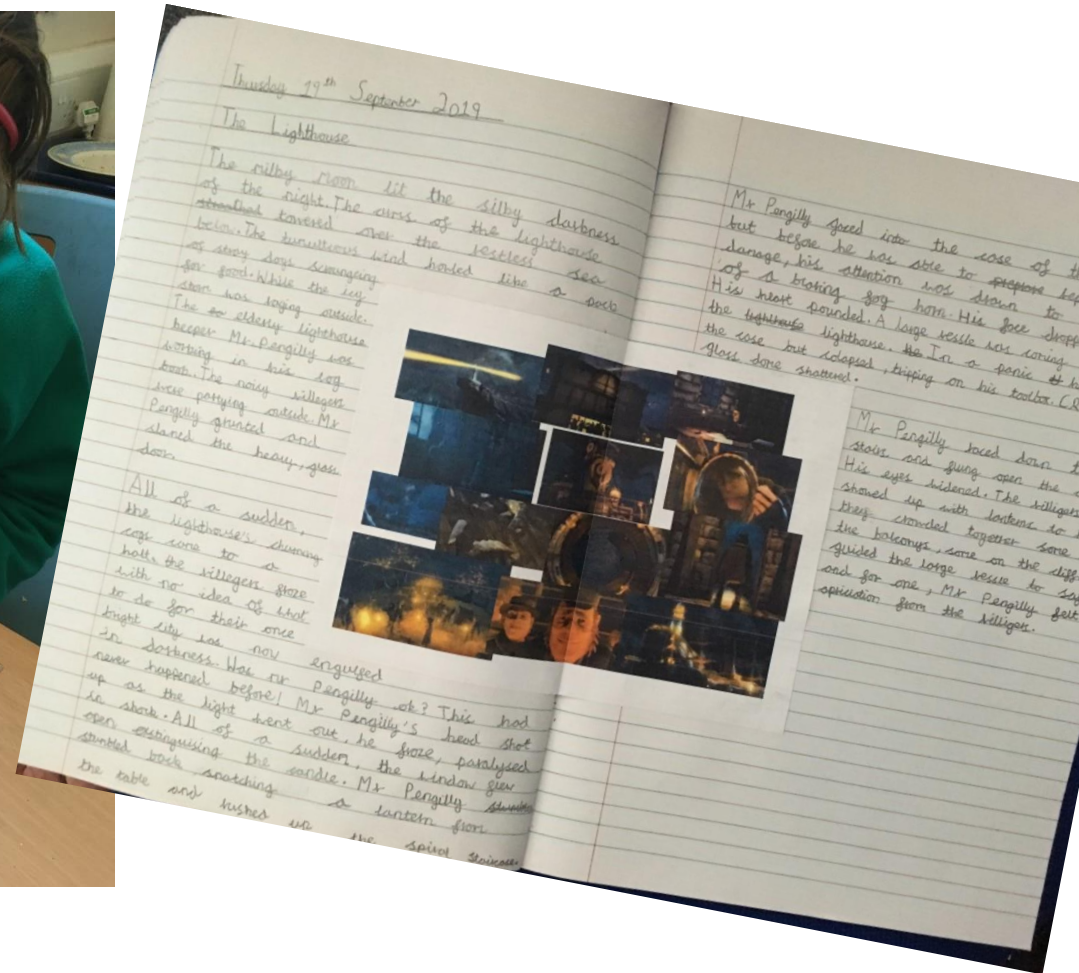 Thursday 19th September 2019
The Lighthouse
The milky moon lit the silky darkness
of the night. The airss of the lighthouse
towered over the restless sea
below. The tumultious wind howled like a pack
of stray dogs scroungeing
for food. While the icy
storm was raging outside.
The elderly lighthouse
keeper Mr Pengilly was
working in his log
book. The noisy villegers
were partying outside. Mr
Pengilly grunted and
slamed the heavy, glass
door.
All of a sudden,
the lighthouse's churning
cogs came to a
halt. the villegers froze
with no idea of what
to do for their once
bright city was now engulged
in darkness. Was mr Pengilly ok? This had
never happened before! Mr Pengilly's head shot
up as the light went out, he froze, paralysed
in shock. All of a sudden, the window flew
open extinguising the candle. Mr Pengilly
stumbled back, snatching a lantern from
the table and rushed up the spiral staircase.
Mr Pengilly gazed into the case of
but before he was able to
damage, his attention was drawn to
of a blaring fog horn. His face
His heart pounded. A large vessle was coming
the lighthouse. In a panic
the case but colapsed, tripping on his toolbox.
glass dome shattered.
Mr Pengilly raced down
stairs and flung open the
His eyes widened. The villigers
showed up with lanterns to
they crowded together some
the balconys, some on the
guided the large vessle to
and for one, Mr Pengilly felt
from the villigers.